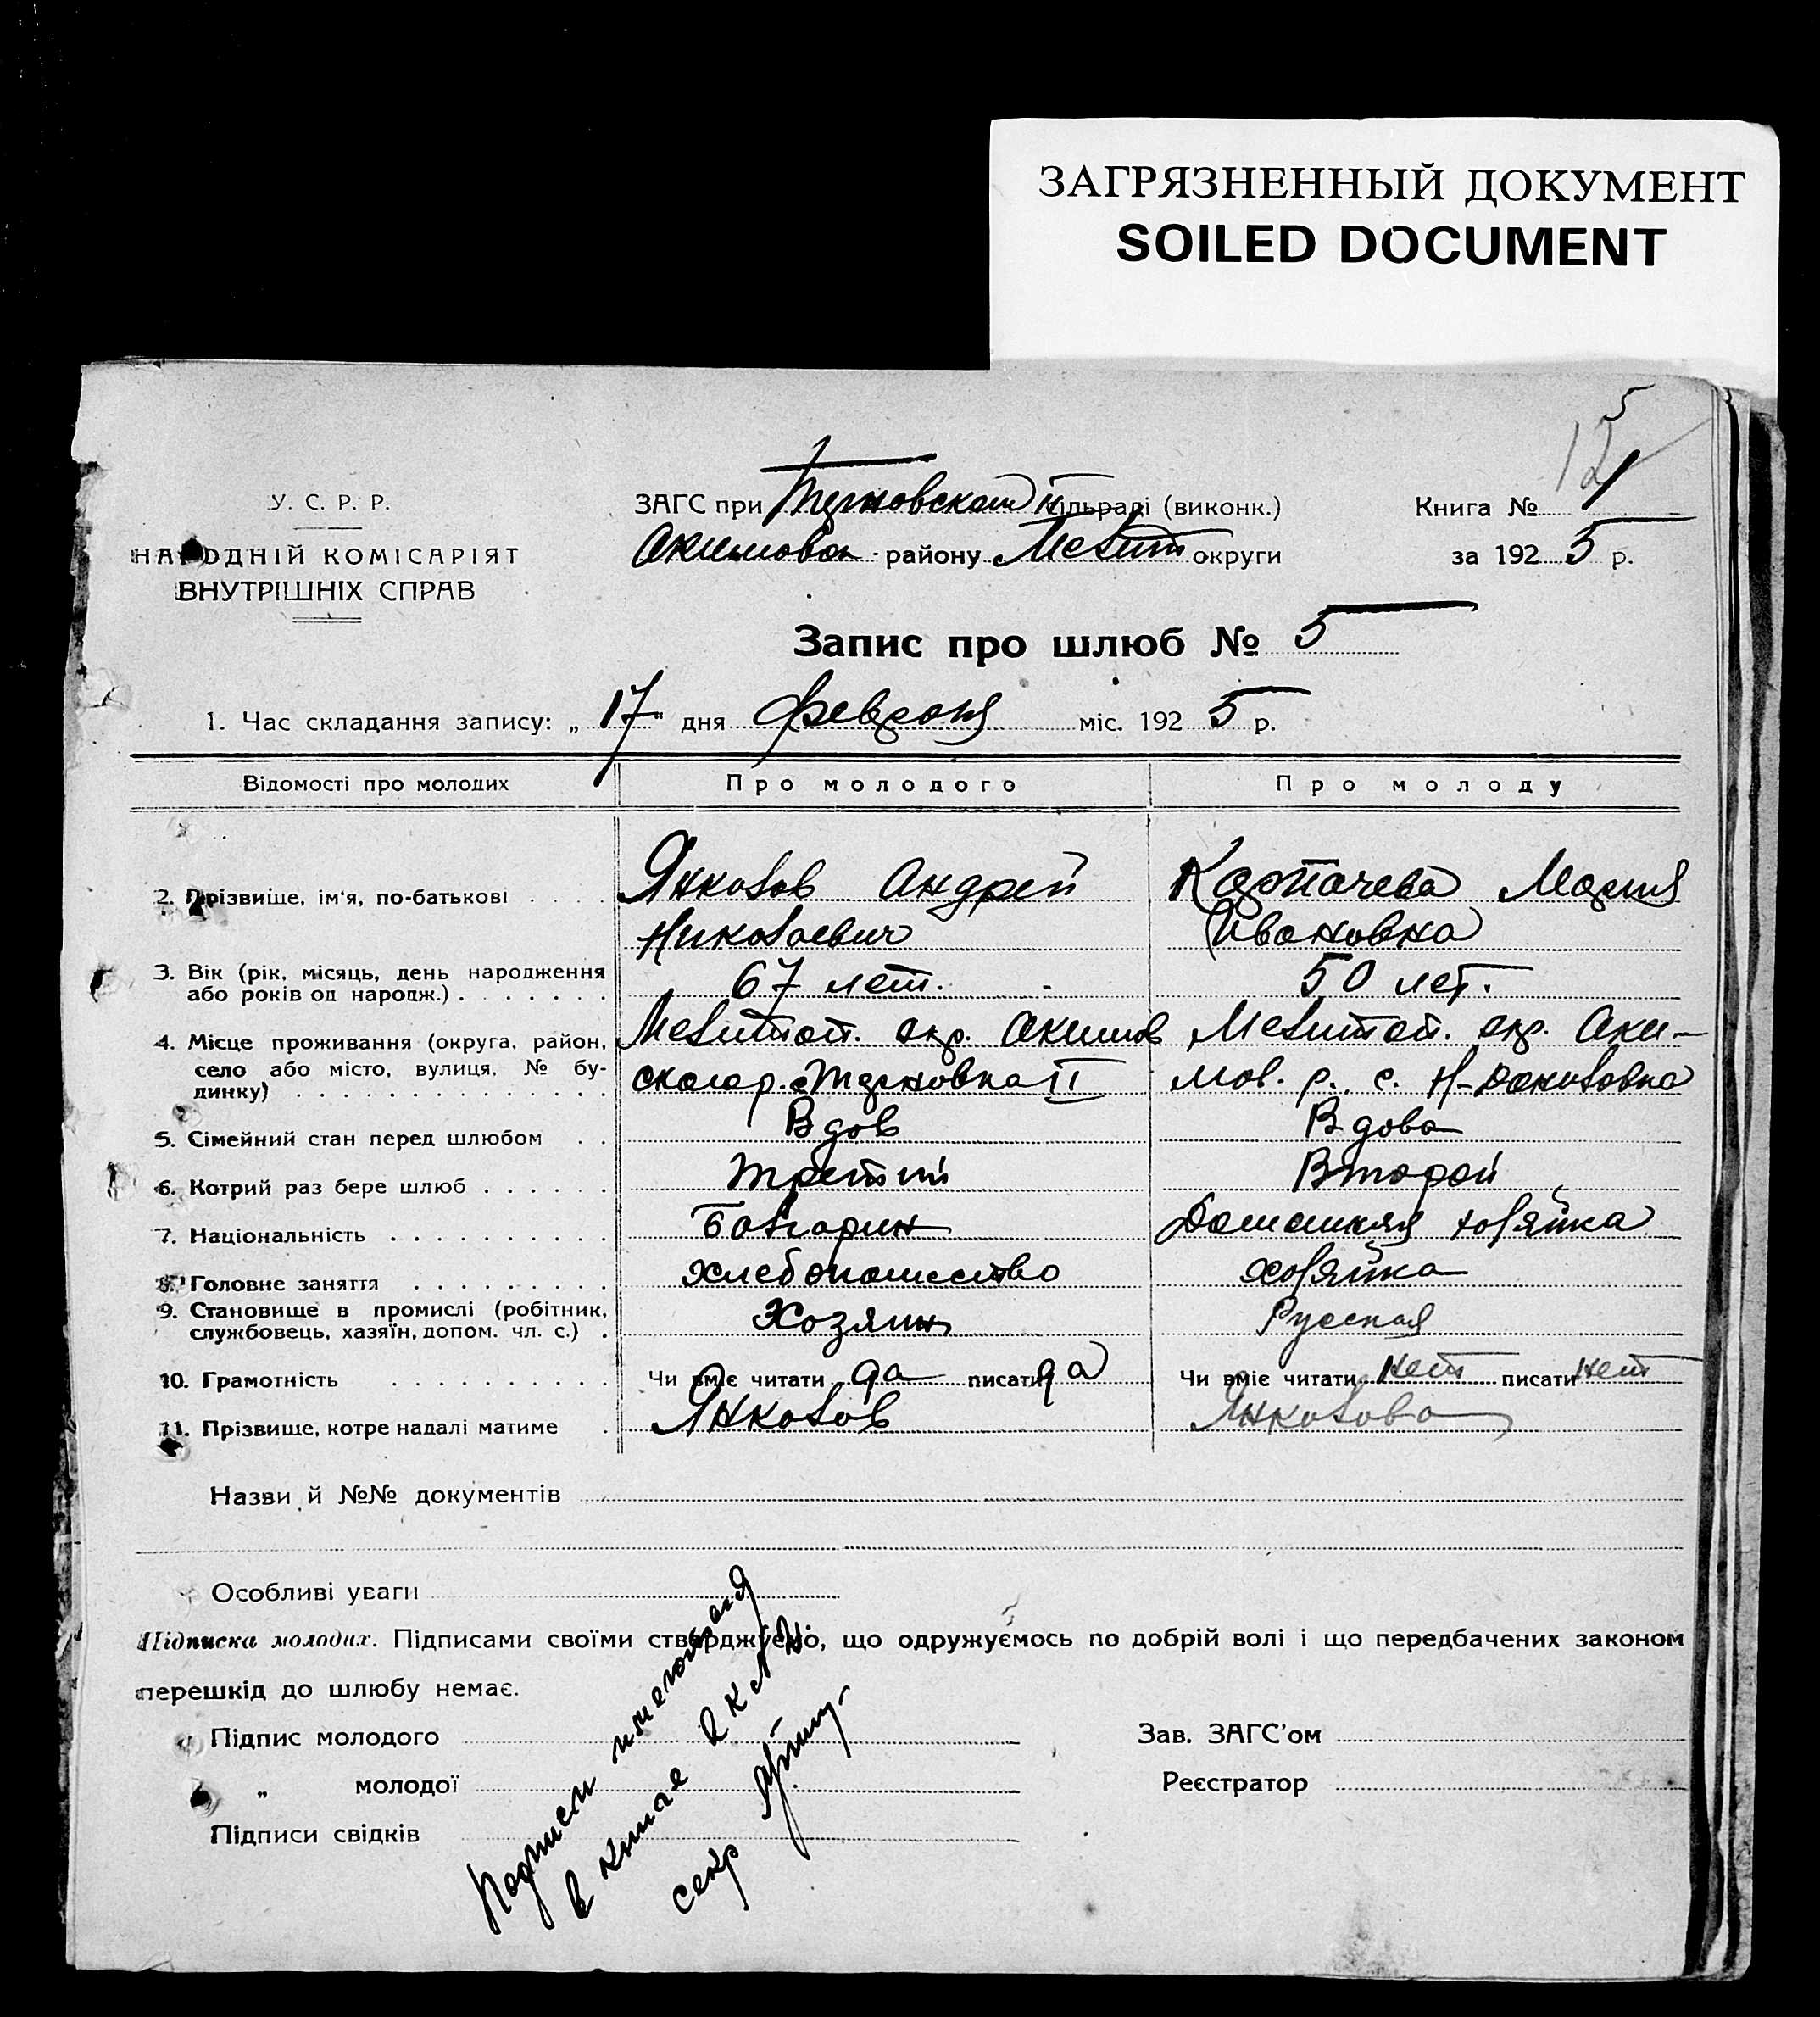 ЗАГРЯЗНЕННЫЙ ДОКУМЕНТ
SOILED DOCUMENT
5
12
У. С. Р. Р.
НАРОДНІЙ КОМІСАРІЯТ
ВНУТРІШНІХ СПРАВ
ЗАГС при Терновском сільраді (виконк.)
Акимовск. району Мелит округи
Книга № 1
за 1925 р.
Запис про шлюб № 5
1. Час складання запису: „17" дня февраля міс. 1925 р.
Відомості про молодих Про молодого Про молоду
2. Прізвище, ім'я, по-батькові . . . . Янколов Андрей Карпачева Мария
Николаевич Ивановна
3. Вік (рік, місяць, день народження 67 лет. 50 лет.
або років од народж.) . . . . . . .
4. Місце проживання (округа, район, Мелитоп. окр. Акимов Мелитоп. окр. Аки-
село або місто, вулиця, № бу- ского р. с. Терновка II мов. р. с. Н-Даниловка
динку) . . . . . . . . . . . . . .
5. Сімейний стан перед шлюбом . . Вдов Вдова
6. Котрий раз бере шлюб . . . . . . Третий Второй
7. Національність . . . . . . . . . . Болгарин Домашняя хозяйка
8. Головне заняття . . . . . . . . . хлебопашество хозяйка
9. Становище в промислі (робітник, Хозяин Русская
службовець, хазяїн, допом. чл. с.) .
10. Грамотність . . . . . . . . . . Чи вміє читати да писати да Чи вміє читати нет писати нет
11. Прізвище, котре надалі матиме . Янколов Янколова
Назви й №№ документів
Особливі уваги
Підписка молодих. Підписами своїми стверджуємо, що одружуємось по добрій волі і що передбачених законом
перешкід до шлюбу немає.
Підпис молодого
„ молодої
Підписи свідків
Зав. ЗАГС'ом
Реєстратор
Подписи имеются
в книге
секр